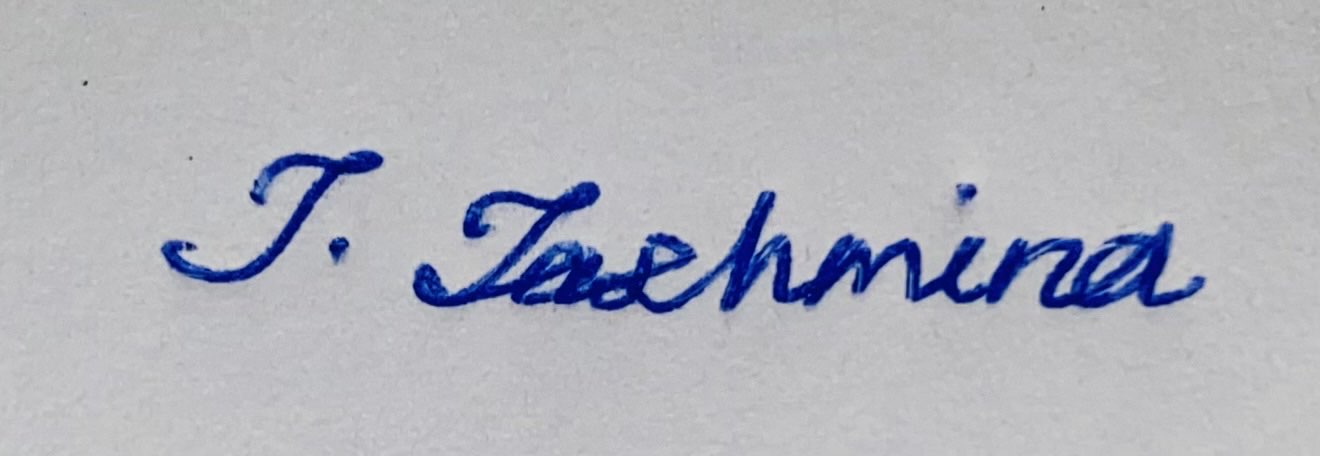 T. Tashmina